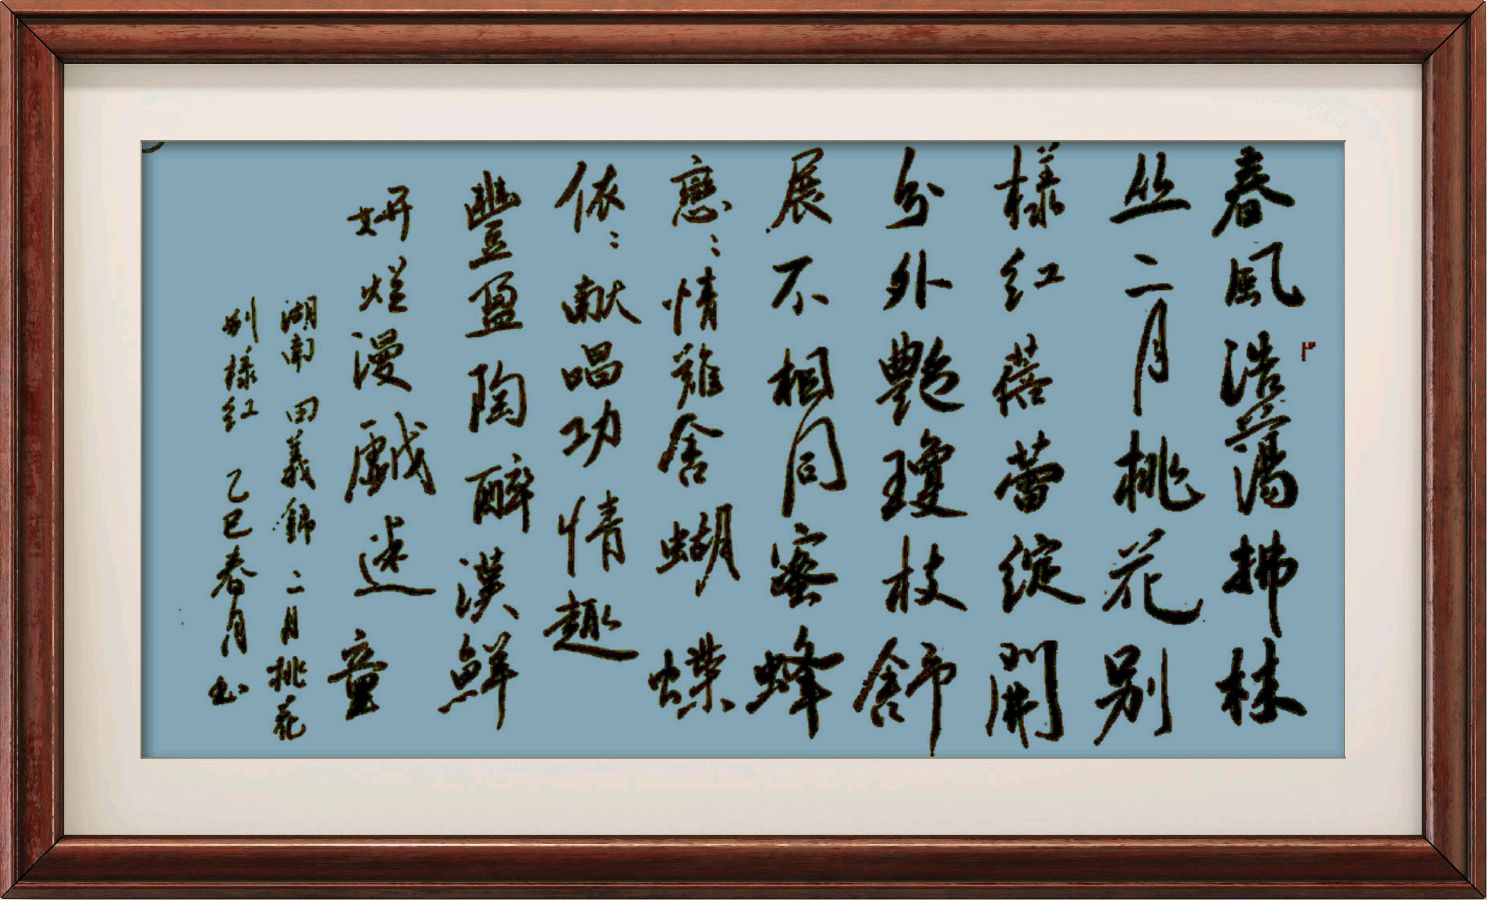 春風浩蕩拂林
丛二月桃花别
樣红蓓蕾綻開
分外艷瓊枝舒
展不相同蜜蜂
戀〻情難舍蝴蝶
依〻献唱功情趣
豐盈陶醉漢鮮
妍爛漫戲迷童
湖南田義錦二月桃花
别樣红乙巳春月书